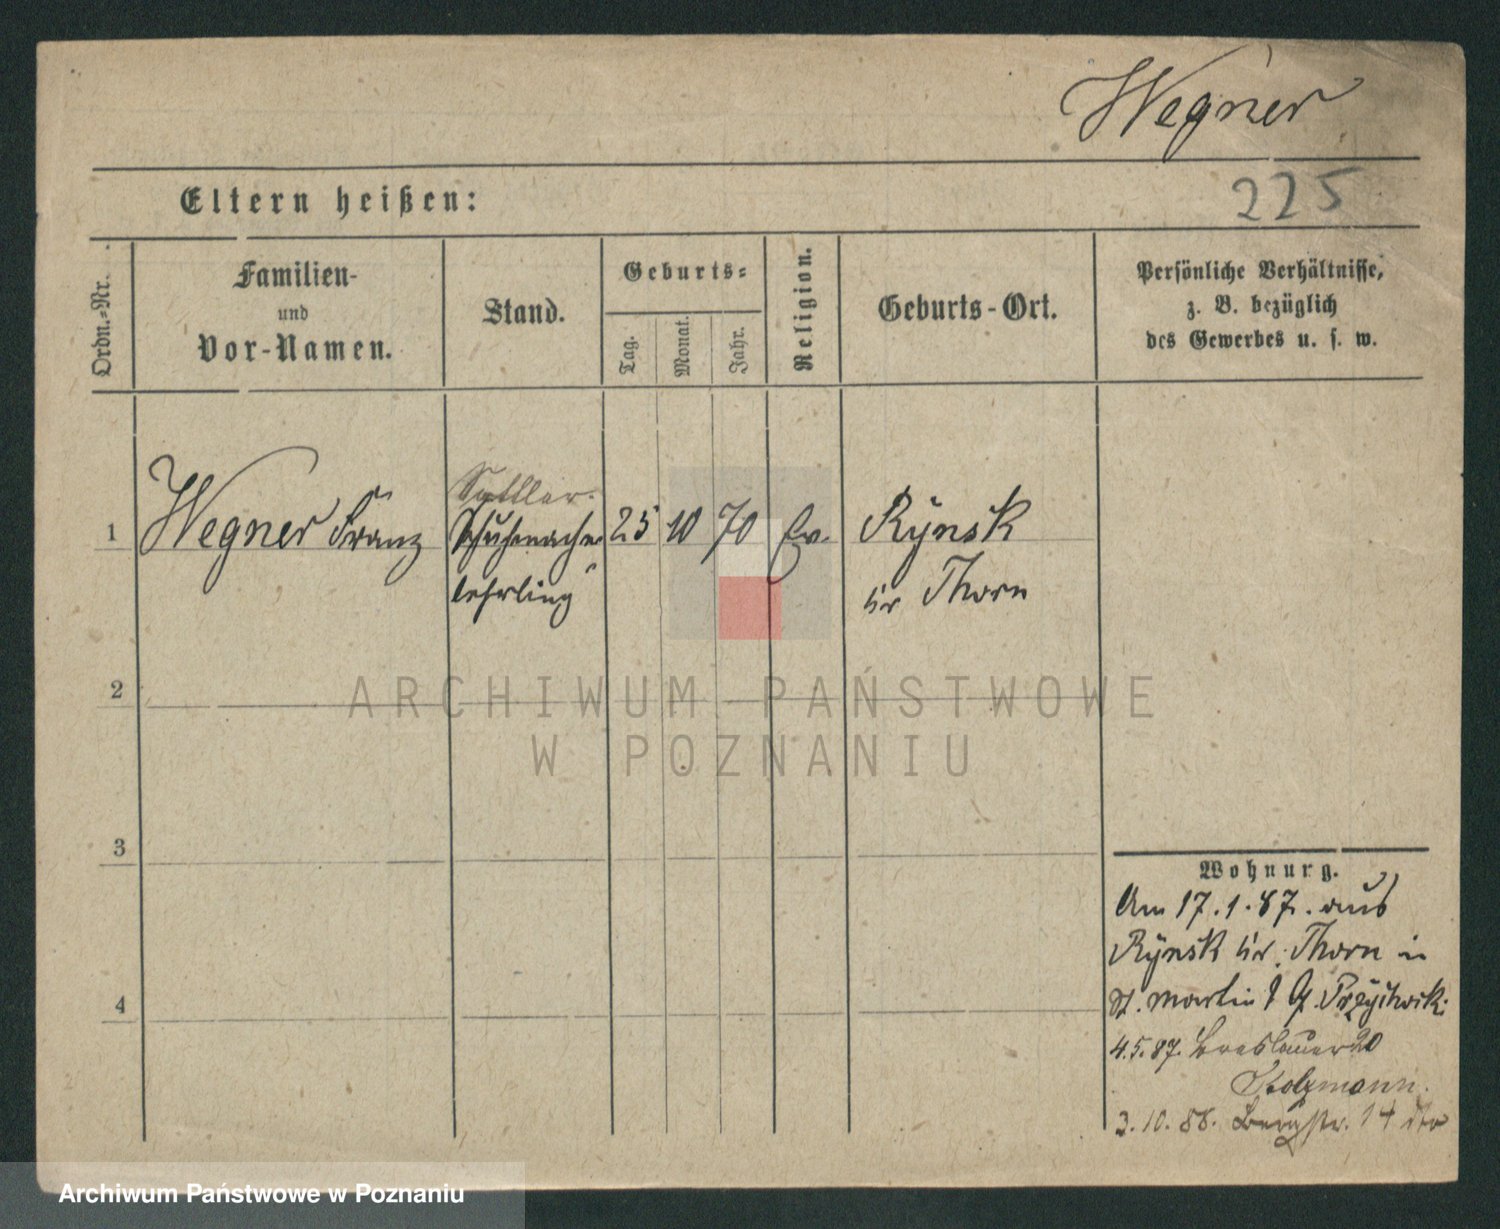 Wegner
225
Eltern heißen:
Ordn.-Nr.
Familien-
und
Vor-Namen.
Stand.
Geburts-
Tag.
Monat.
Jahr.
Religion.
Geburts-Ort.
Persönliche Verhältnisse,
z. B. bezüglich
des Gewerbes u. s. w.
Sattler
1 Wegner Franz Schuhmacher 25 10 70 Ev. Rÿnsk
lehrling Kr Thorn
2
ARCHIWUM PAŃSTWOWE
W POZNANIU
3
Wohnung.
Am 17.1.87. aus
Rÿnsk Kr. Thorn in
St. Martin
4
4.5.87. Breslauer 20
Holzmann.
3.10.88. Bergstr. 14 dto
Archiwum Państwowe w Poznaniu